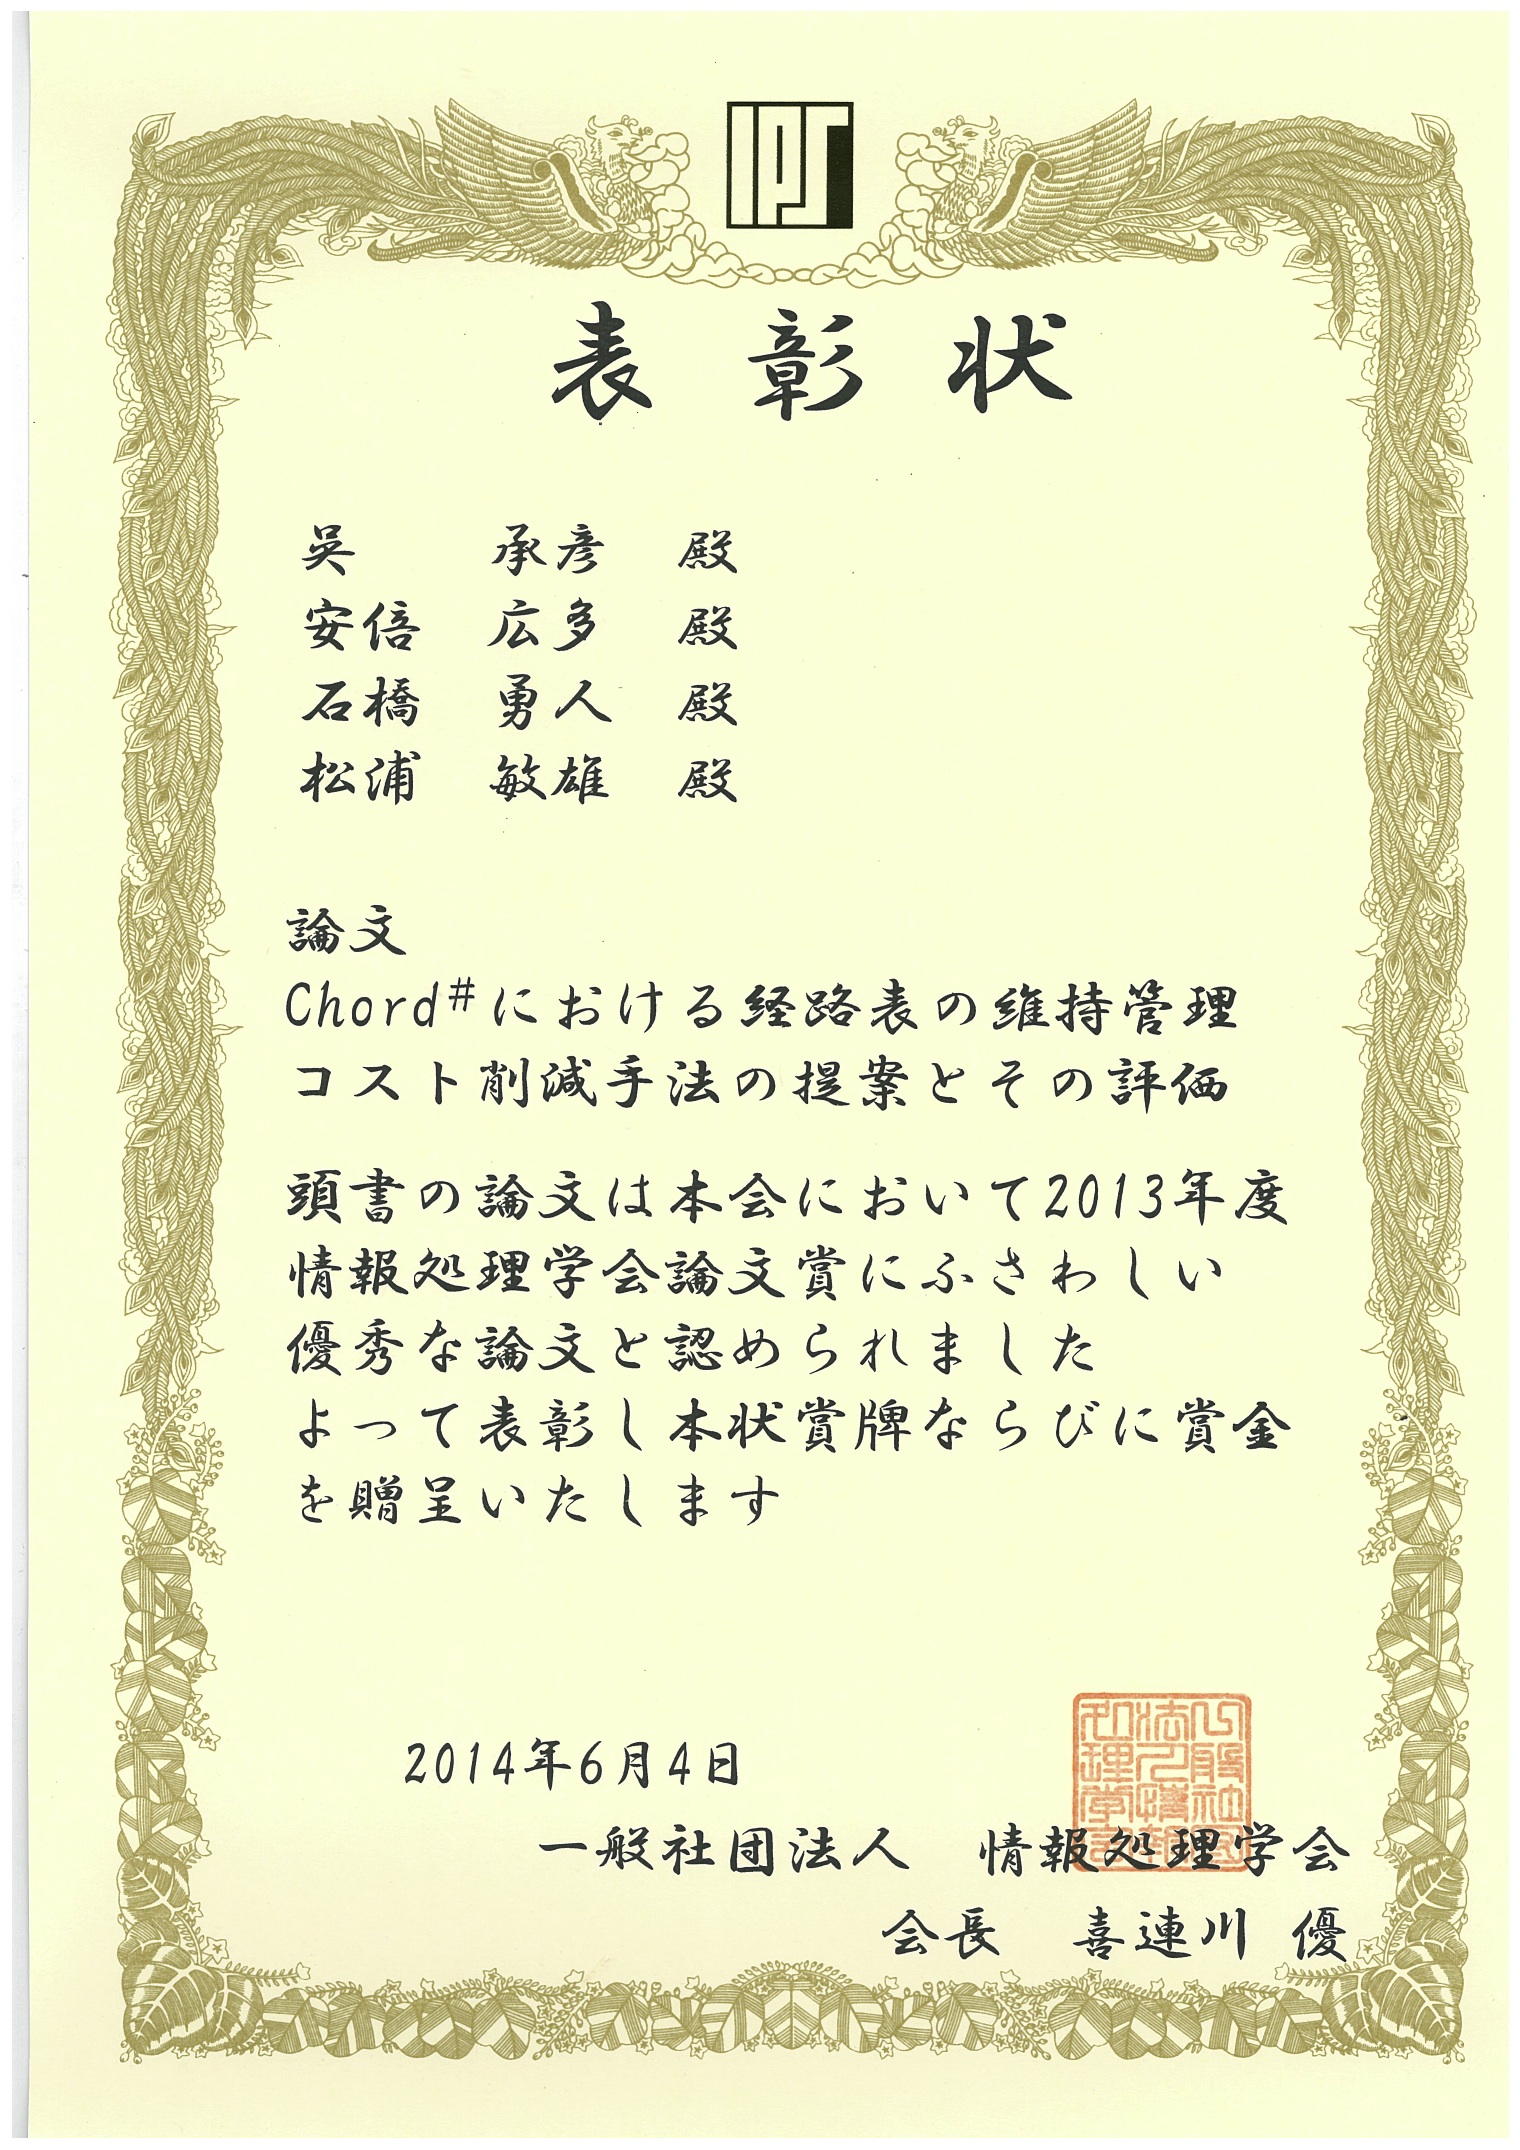 IPS
表彰状
吳 承彦 殿
安倍 広多 殿
石橋 勇人 殿
松浦 敏雄 殿
論文
Chord#における経路表の維持管理
コスト削減手法の提案とその評価
頭書の論文は本会において2013年度
情報処理学会論文賞にふさわしい
優秀な論文と認められました
よって表彰し本状賞牌ならびに賞金
を贈呈いたします
2014年6月4日
一般社団法人 情報処理学会
会長 喜連川 優